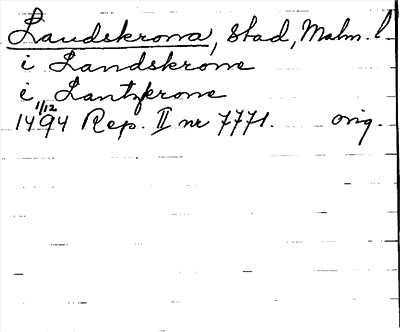 Landskrona, Stad, Malm. l.
i Landskrone
i Lantzkrone
1494 1/12 Rep. II nr 7771. orig.